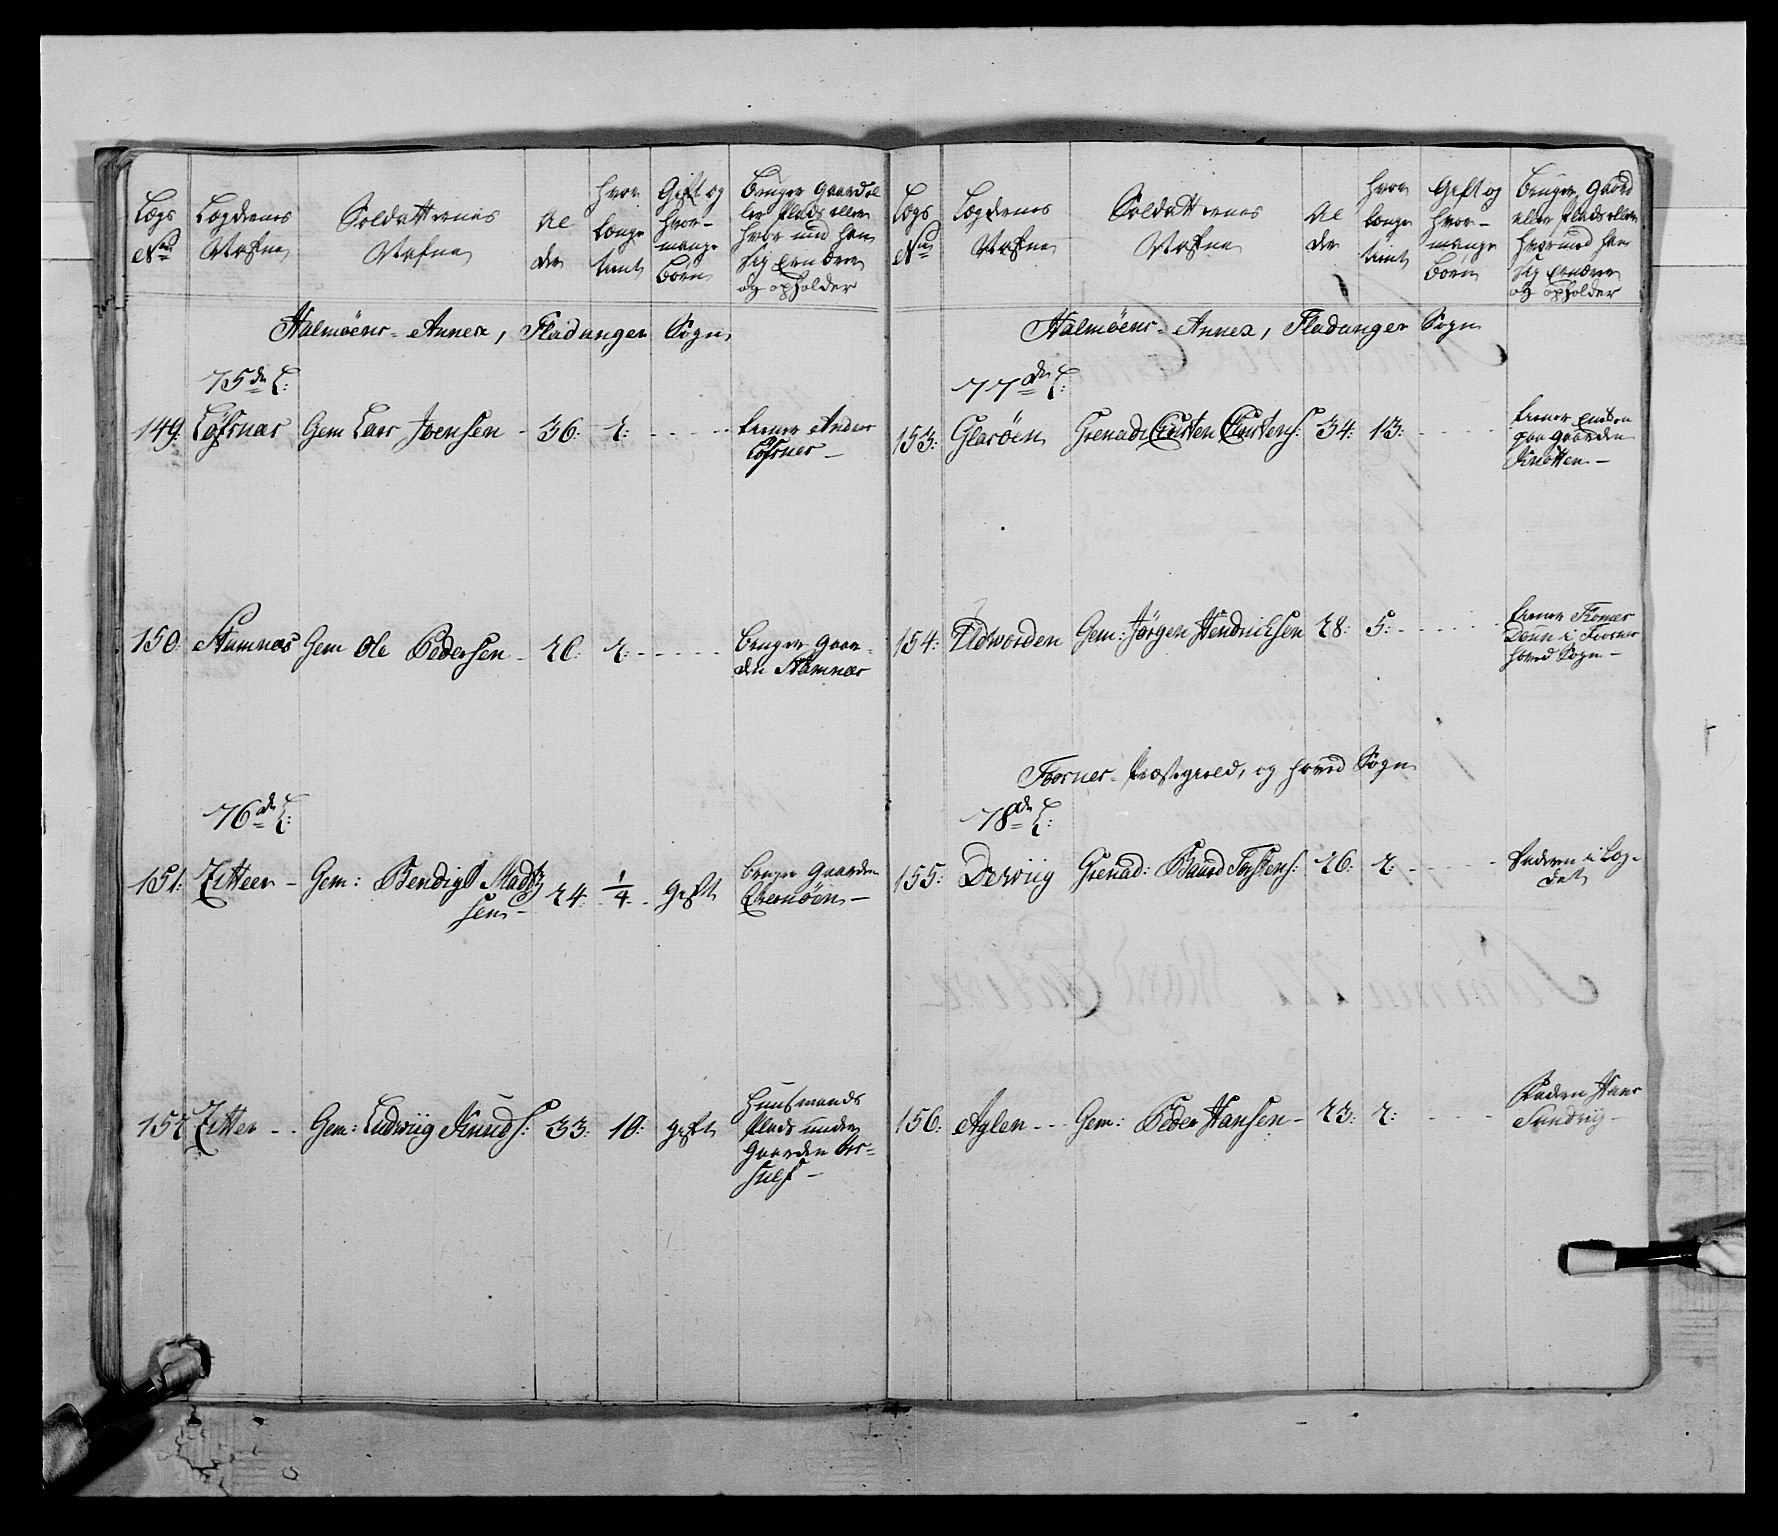 Lægs No
Lægdernes Nafne
Soldatternes Nafne
Al der
hvor længe tient
Gift og hvor- mange Børn
bruger Gaard el ler Plads eller hvor med han sig ernærer og opholder
Halmøens- Annex, Fladanger Sogn
75de L:
149: Løfsnæs Gem Lars Joensen - 36: 2: - - - - tiener Anders Løfsnes -
150: Stamnæs Gem Ole Pedersen - 26: 2: - - - - - bruger Gaar- den Stamnæs
76de L:
151: Zitteer - Gem: Bendigt Madt sen - 24: 1/4: - gift bruger Gaarden
152 Zitter - - Gem: Ludwiig Knuds: 33: 10: gift Huusmands Plads under Gaarden
Lægs No
Lægdernes Nafne
Soldatternes Nafne
Al der
hvor længe tient
Gift og hvor- mange Børn
bruger Gaard eller Plads eller hvormed han sig ernærer og opholder
Halmøens- Annex, Fladanger Sogn
77de L:
153: Glasøen Grenad: Christen Christens: 34: 13: - - - - tiener paa Gaarden
154: Eldworden Gem: Jørgen Hendrichsen 28: 5: - - - - - tiener i Fosnes hoved Sogn -
Fosnes- Præstegield, og hoved Sogn
78de L:
155: Derwiig Grenad: Baard Torstens: 26: 2: - - - - Faderen i Læg- det
156: Aglen - - Gem: Peder Hansen - 23: 2: - - - Faderen Hans Sandvig -